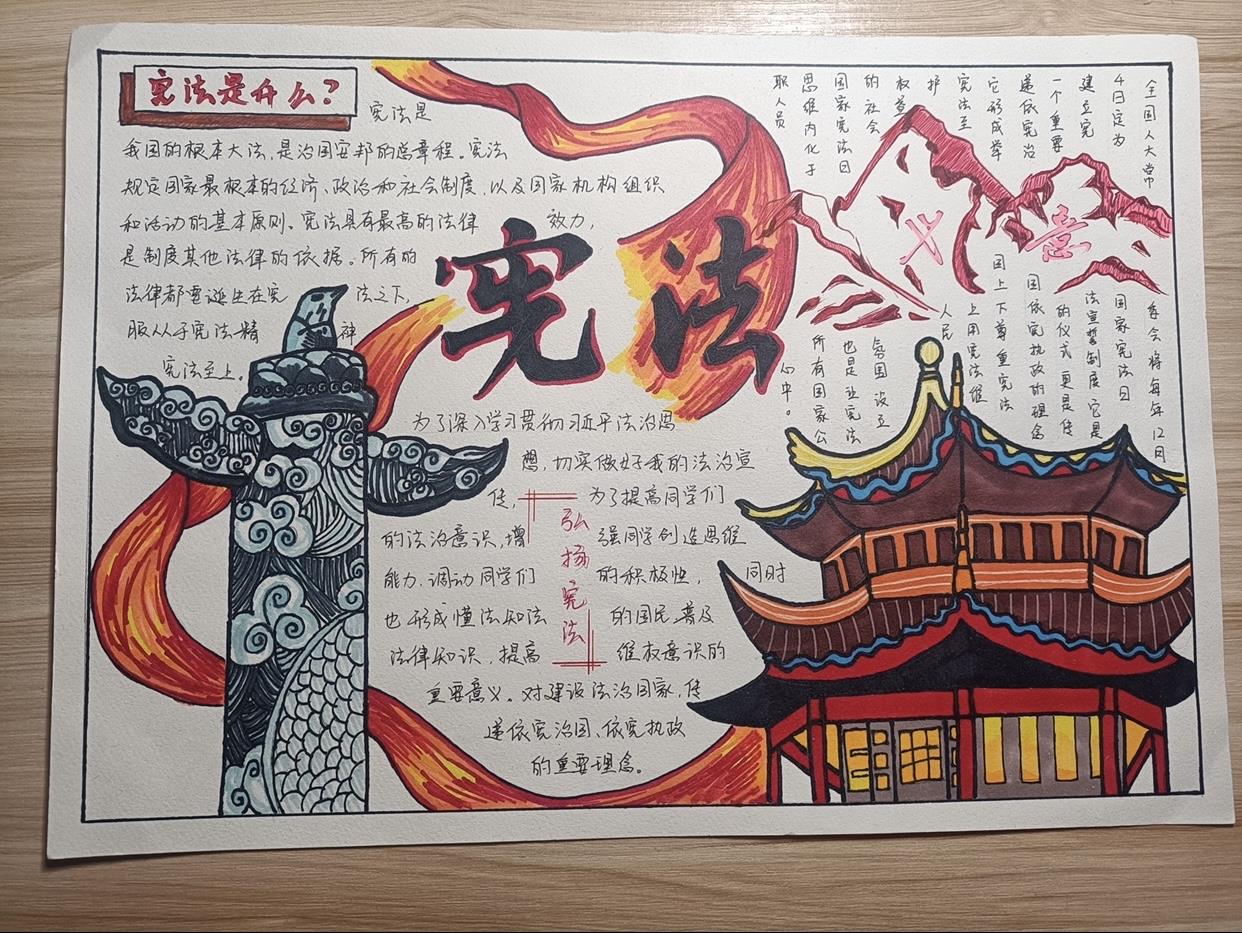 宪法是什么?
宪法是
我国的根本大法,是治国安邦的总章程。宪法
规定国家最根本的经济、政治和社会制度,以及国家机构组织
和活动的基本原则、宪法具有最高的法律效力,
是制度其他法律的依据。所有的
法律都要诞生在宪法之下,
服从于宪法精神
宪法至上。
宪法
为了深入学习贯彻习近平法治思
想,切实做好我的法治宣
传,为了提高同学们
的法治意识,增强同学创造思维
能力,调动同学们的积极性,同时
也形成懂法知法的国民,普及
法律知识,提高维权意识的
重要意义。对建设法治国家,传
递依宪治国、依宪执政
的重要理念。
弘扬宪法
意义
全国人大常委会将每年12月
4日定为国家宪法日
建立宪法宣誓制度它是
一个重要的仪式更是传
递依宪治国依宪执政的理念
它形成举国上下尊重宪法
宪法至上用宪法维
护人民
权益
的社会氛围设立
国家宪法日也是让宪法
思维内化于所有国家公
职人员心中。